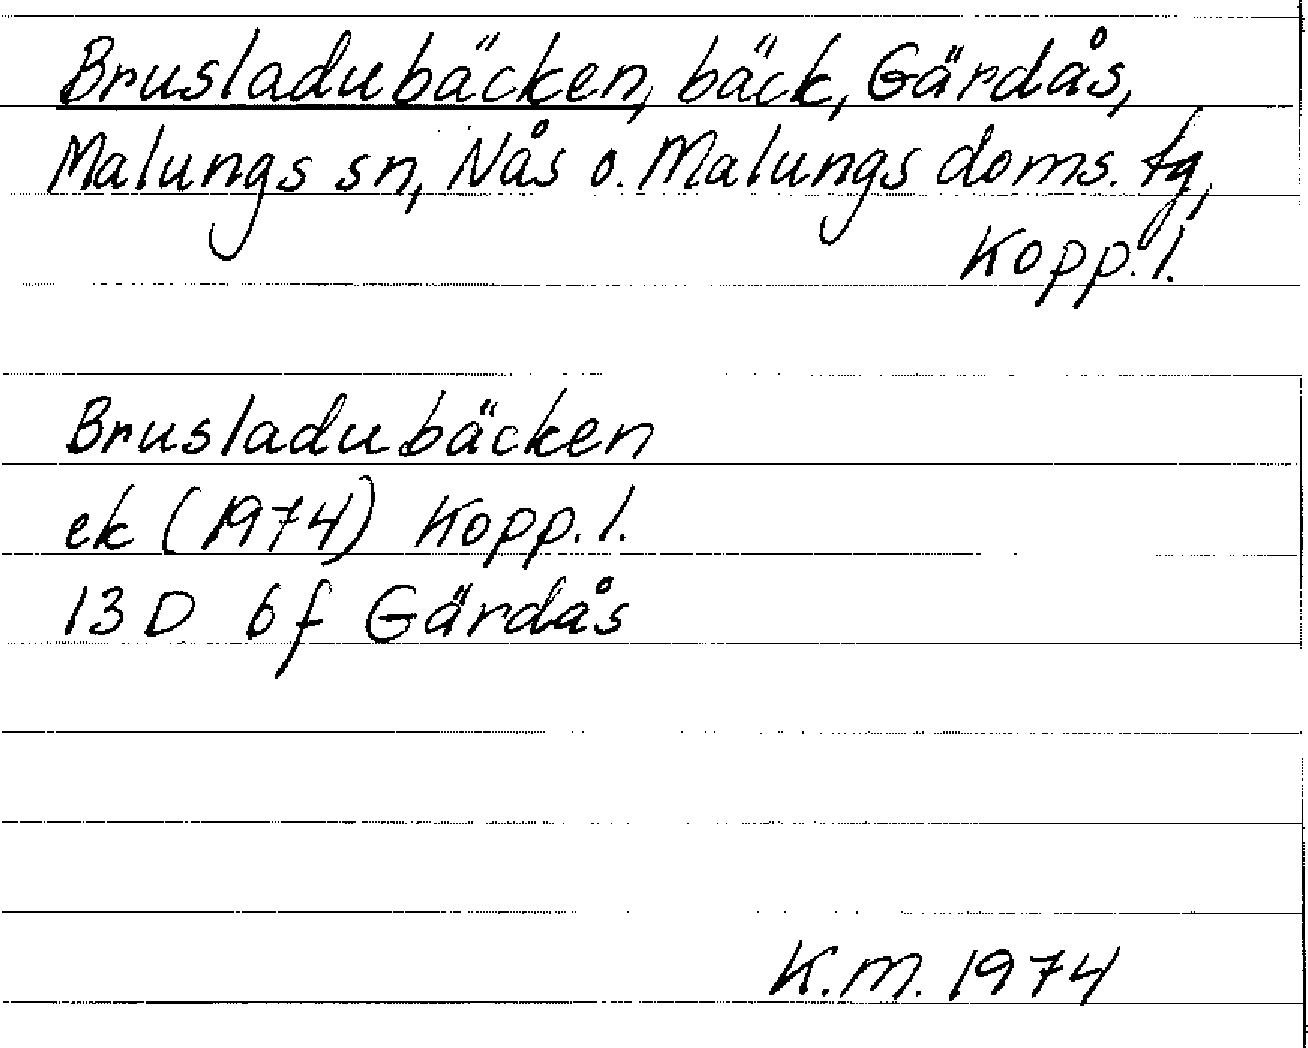 Brusladubäcken, bäck, Gärdås,
Malungs sn, Nås o. Malungs doms. tg,
Kopp. l.
Brusladubäcken
ek (1974) Kopp. l.
13 D 6 f Gärdås
K.M. 1974